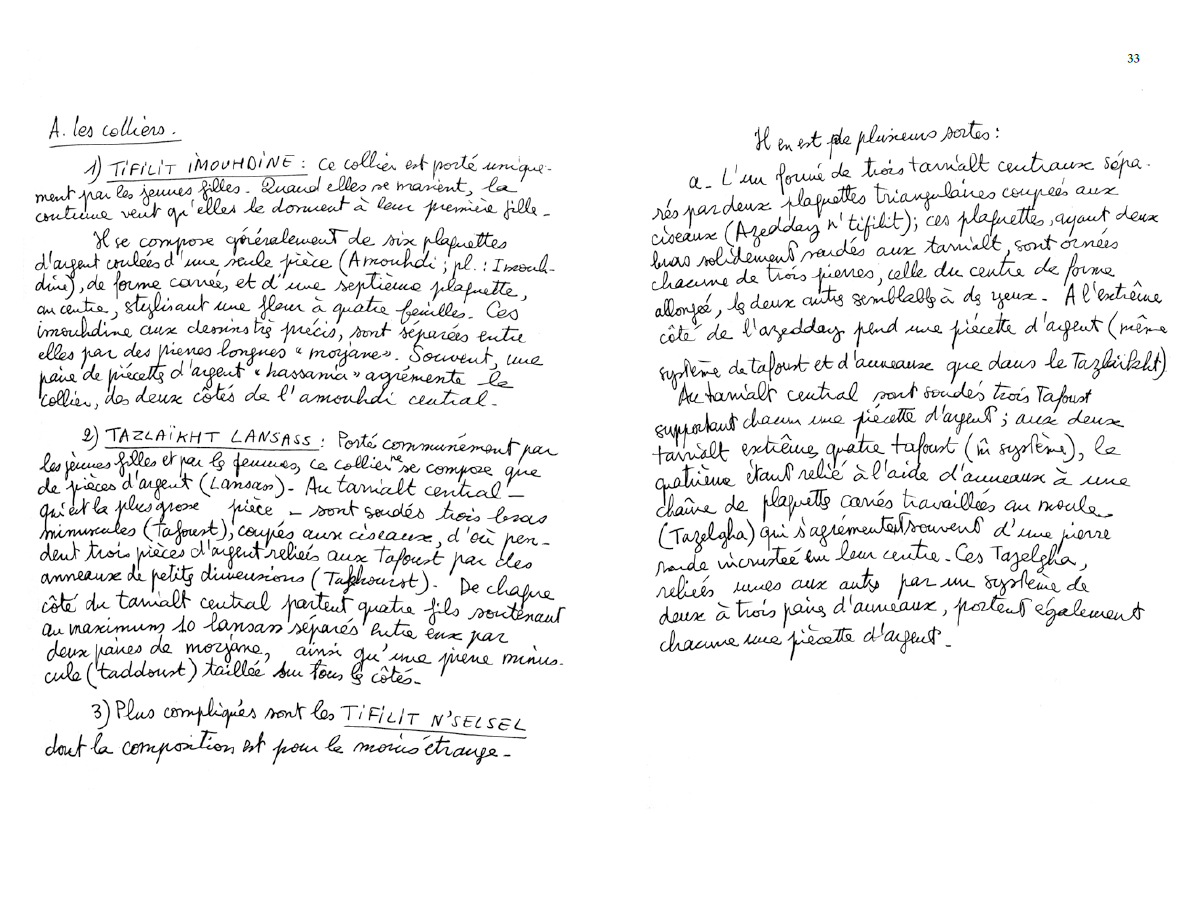 A. les colliers.
1) TIFILIT IMOUHDINE : Ce collier est porté unique-
ment par les jeunes filles. Quand elles se marient, la
coutume veut qu'elles le donnent à leur première fille.
Il se compose généralement de six plaquettes
d'argent coulées d'une seule pièce (Amouhdi ; pl. : Imouh-
dine), de forme carrée, et d'une septième plaquette,
au centre, stylisant une fleur à quatre feuilles. Ces
imouhdine aux dessins très précis, sont séparées entre
elles par des pierres longues "morjane". Souvent, une
paire de piécettes d'argent "hassania" agrémente le
collier, des deux côtés de l'amouhdi central.
2) TAZLAÏKHT LANSASS : Porté communément par
les jeunes filles et par les femmes, ce collier ne se compose que
de pièces d'argent (Lansass). Au tarrialt central _
qui est la plus grosse pièce _ sont soudés trois bras
minuscules (tafoust), coupés aux ciseaux, d'où pen-
dent trois pièces d'argent reliées aux tafoust par des
anneaux de petites dimensions (). De chaque
côté du tarrialt central partent quatre fils soutenant
au maximum 10 lansass séparés entre eux par
deux paires de morjane, ainsi qu'une pierre minus-
cule (taddoust) taillée sur tous les côtés.
3) Plus compliqués sont les TIFILIT N'SELSEL
dont la composition est pour le moins étrange.
33
Il en est de plusieurs sortes :
a. L'un formé de trois tarrialt centraux sépa-
rés par deux plaquettes triangulaires coupées aux
ciseaux (Azedday n'tifilit) ; ces plaquettes, ayant deux
bras solidement soudés aux tarrialt, sont ornées
chacune de trois pierres, celle du centre de forme
allongée, les deux autres semblables à des yeux. A l'extrême
côté de l'azedday pend une piécette d'argent (même
système de tafoust et d'anneaux que dans le )
Au tarrialt central sont soudés trois Tafoust
supportant chacun une piécette d'argent ; aux deux
tarrialt extrêmes quatre tafoust (m̂ système), le
quatrième étant relié à l'aide d'anneaux à une
chaîne de plaquettes carrées travaillées au moule
(Tazelgha) qui s'agrémentent souvent d'une pierre
ronde incrustée en leur centre. Ces Tazelgha,
reliées unes aux autres par un système de
deux à trois paires d'anneaux, portent également
chacune une piécette d'argent.